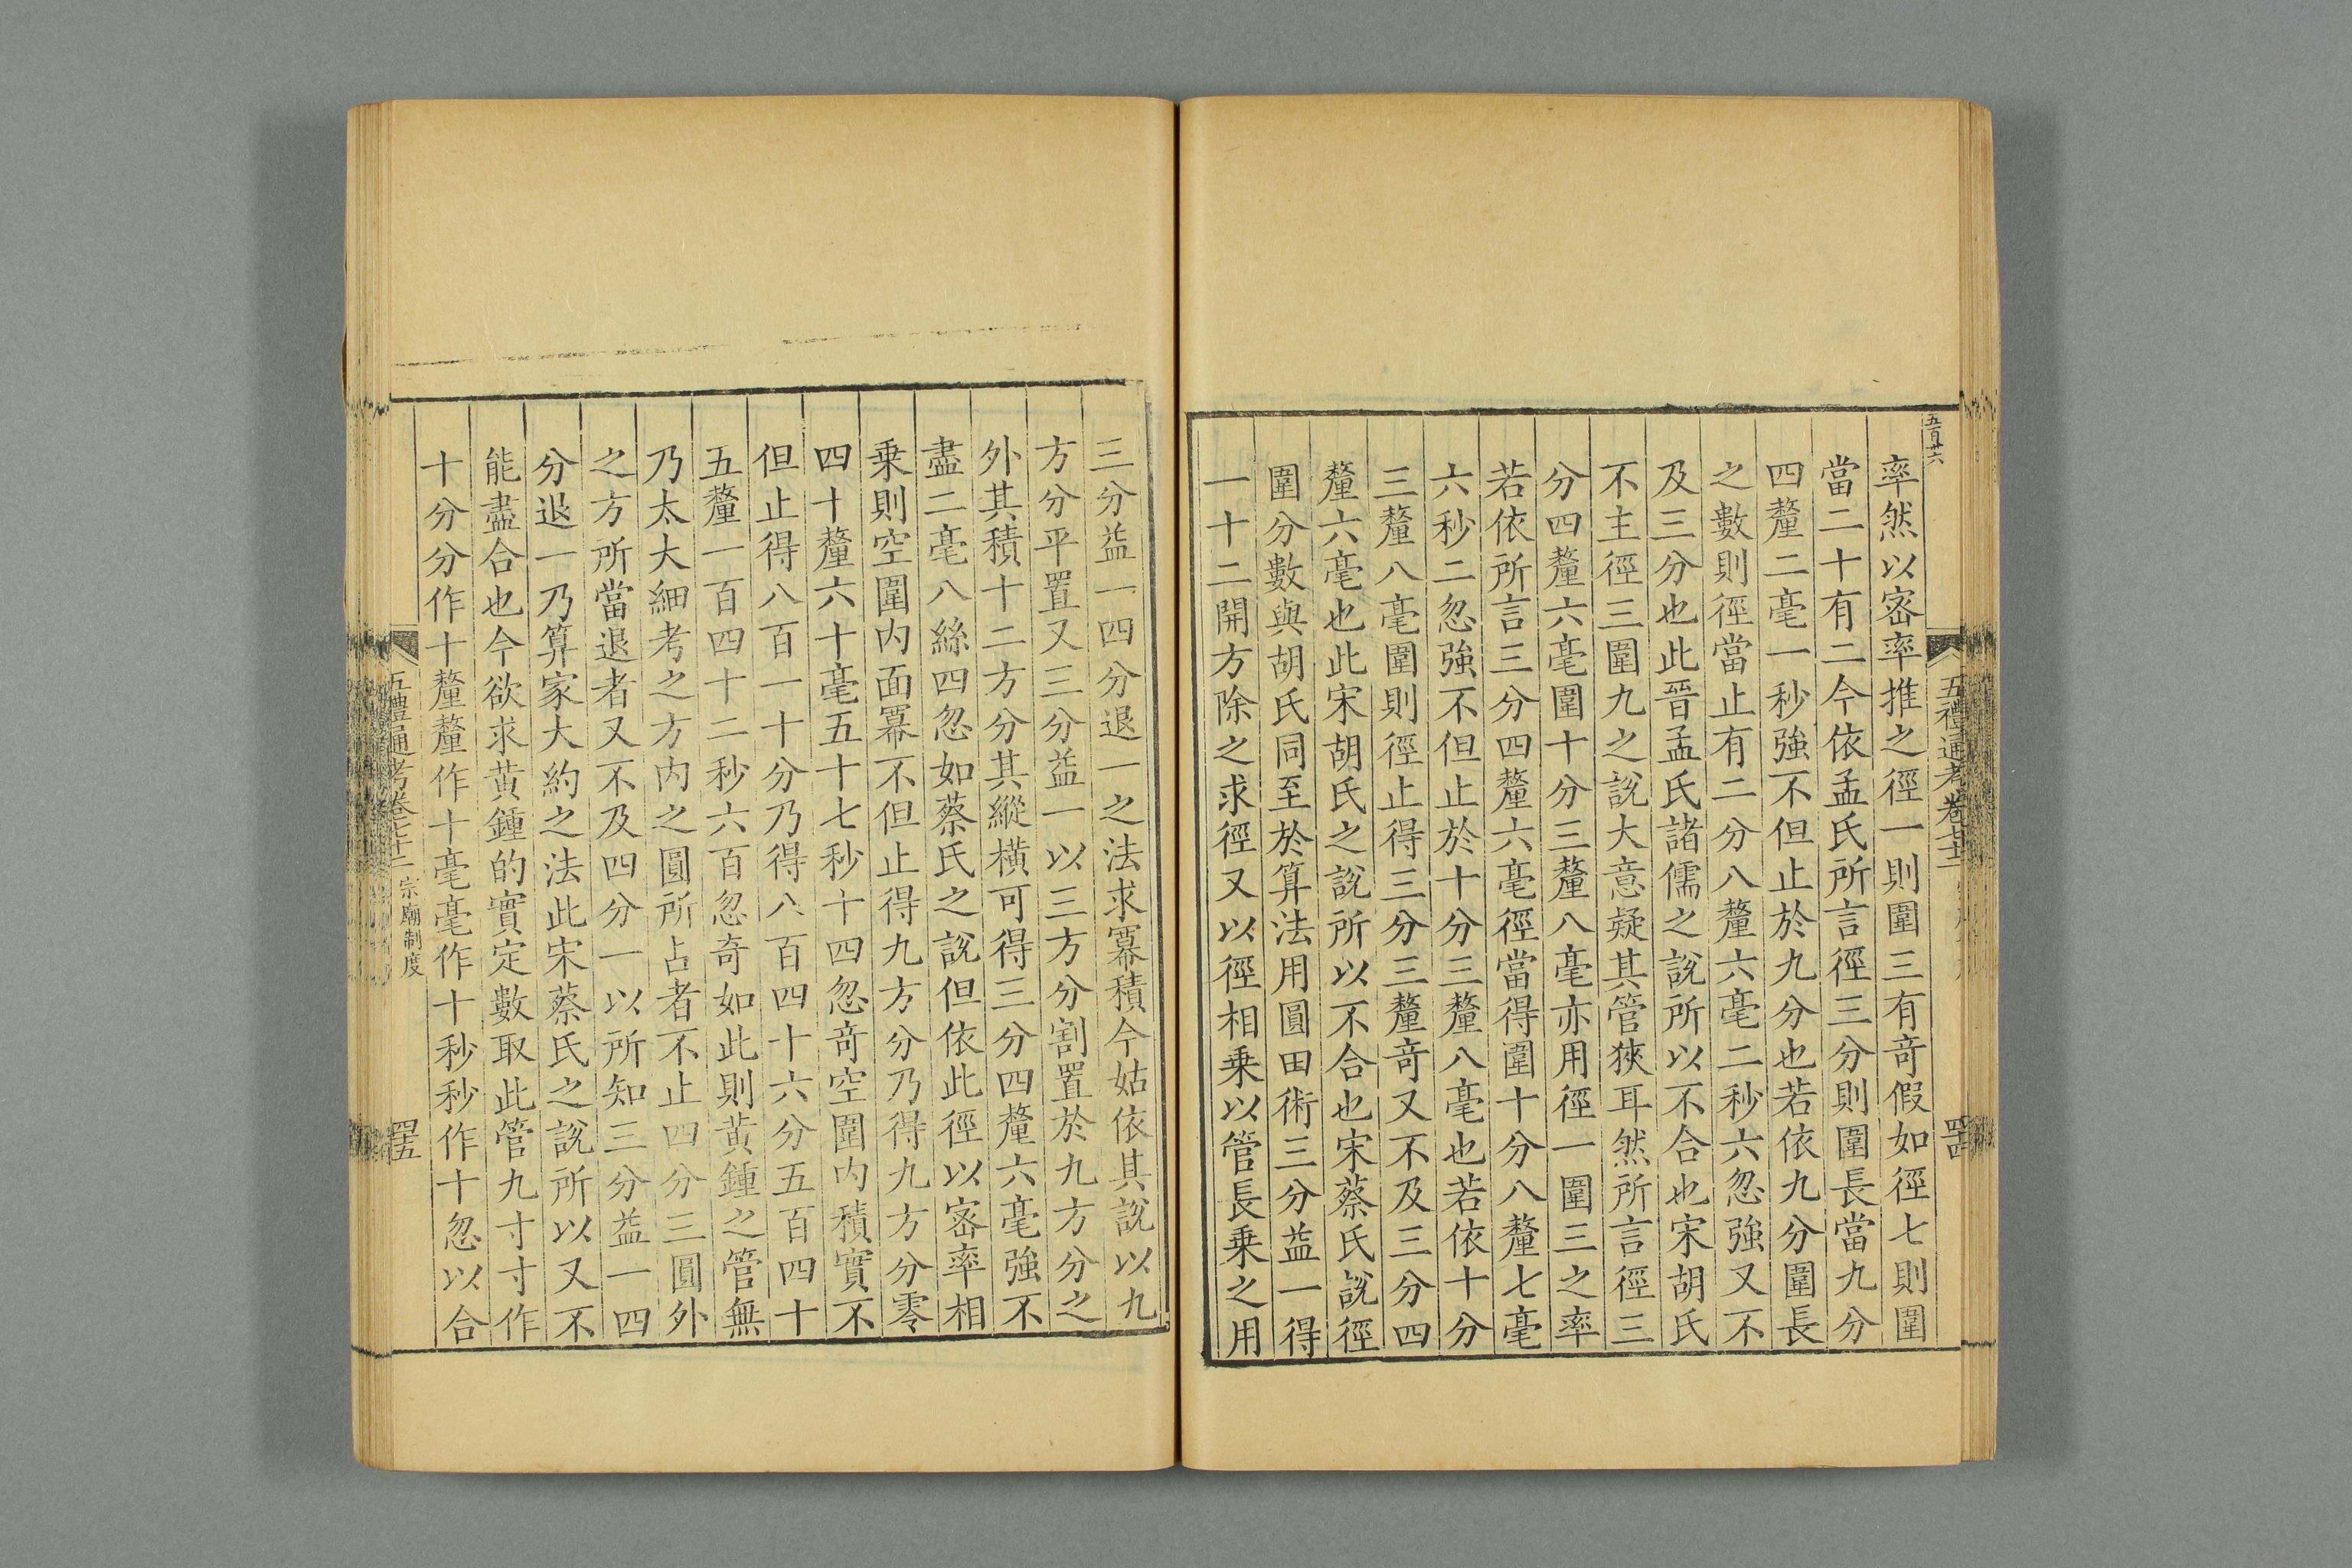 五百廿六
率然以密率推之徑一則圍三有竒假如徑七則圍
當二十有二今依孟氏所言徑三分則圍長當九分
四釐二毫一秒強不但止於九分也若依九分圍長
之數則徑當止有二分八釐六毫二秒六忽強又不
及三分也此晉孟氏諸儒之說所以不合也宋胡氏
不主徑三圍九之說大意疑其管狹耳然所言徑三
分四釐六毫圍十分三釐八毫亦用徑一圍三之率
若依所言三分四釐六毫徑當得圍十分八釐七毫
六秒二忽強不但止於十分三釐八毫也若依十分
三釐八毫圍則徑止得三分三釐竒又不及三分四
釐六毫也此宋胡氏之說所以不合也宋蔡氏說徑
圍分數與胡氏同至於算法用圓田術三分益一得
一十二開方除之求徑又以徑相乗以管長乗之用
五禮通考卷七十二
四十四
三分益一四分退一之法求冪積今姑依其說以九
方分平置又三分益一以三方分割置於九方分之
外其積十二方分其縱橫可得三分四釐六毫強不
盡二毫八絲四忽如蔡氏之說但依此徑以密率相
乗則空圍内面冪不但止得九方分乃得九方分零
四十釐六十毫五十七秒十四忽竒空圍内積實不
但止得八百一十分乃得八百四十六分五百四十
五釐一百四十二秒六百忽奇如此則黄鍾之管無
乃太大細考之方内之圓所占者不止四分三圓外
之方所當退者又不及四分一以所知三分益一四
分退一乃算家大約之法此宋蔡氏之說所以又不
能盡合也今欲求黃鍾的實定數取此管九寸寸作
十分分作十釐釐作十毫毫作十秒秒作十忽以合
五禮通考卷七十二 宗廟制度
四十五